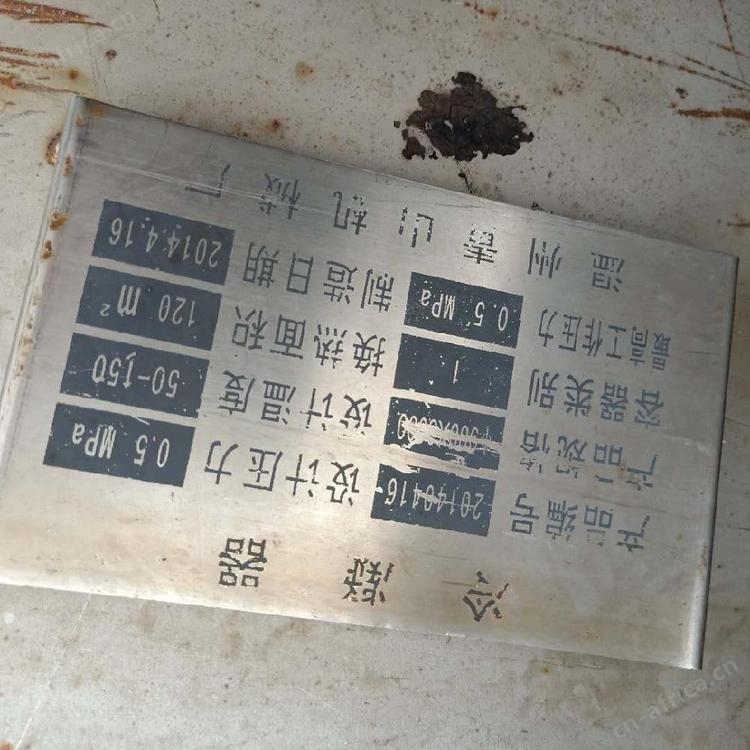 冷凝器
产品编号 20140416 设计压力 0.5 MPa
产品规格 设计温度 50-150
容器类别 1 换热面积 120 m²
最高工作压力 0.5 MPa 制造日期 2014.4.16
温州青山机械厂
cn-africa.cn